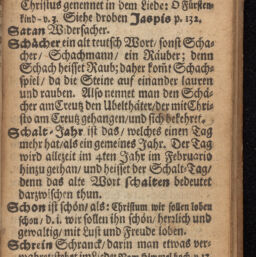 Christus genennet in dem Liede: O Fürsten-
kind-v.3. Siehe droben Jaspis p. 132.
Satan Widersacher.
Schächer ein alt teutsch Wort / sonst Scha-
cher / Schachmann / ein Räuber; denn
Schach heisset Raub; daher komt Schach-
spiel / da die Steine auf einander lauren
und rauben. Also nennet man den Schä-
cher am Creutz den Ubelthäter / der mit Chri-
sto am Creutz gehangen / und sich bekehret.
Schalt-Jahr ist das / welches einen Tag
mehr hat / als ein gemeines Jahr. Der Tag
wird allezeit im 4ten Jahr im Februario
hinzu gethan / und heisset der Schalt-Tag /
denn das alte Wort schalten bedeutet
darzwischen thun.
Schon ist schön / als: Christum wir sollen loben
schon / d. i. wir sollen ihn schön / herrlich und
gewaltig / mit Lust und Freude loben.
Schrein Schranck / darin man etwas ver-